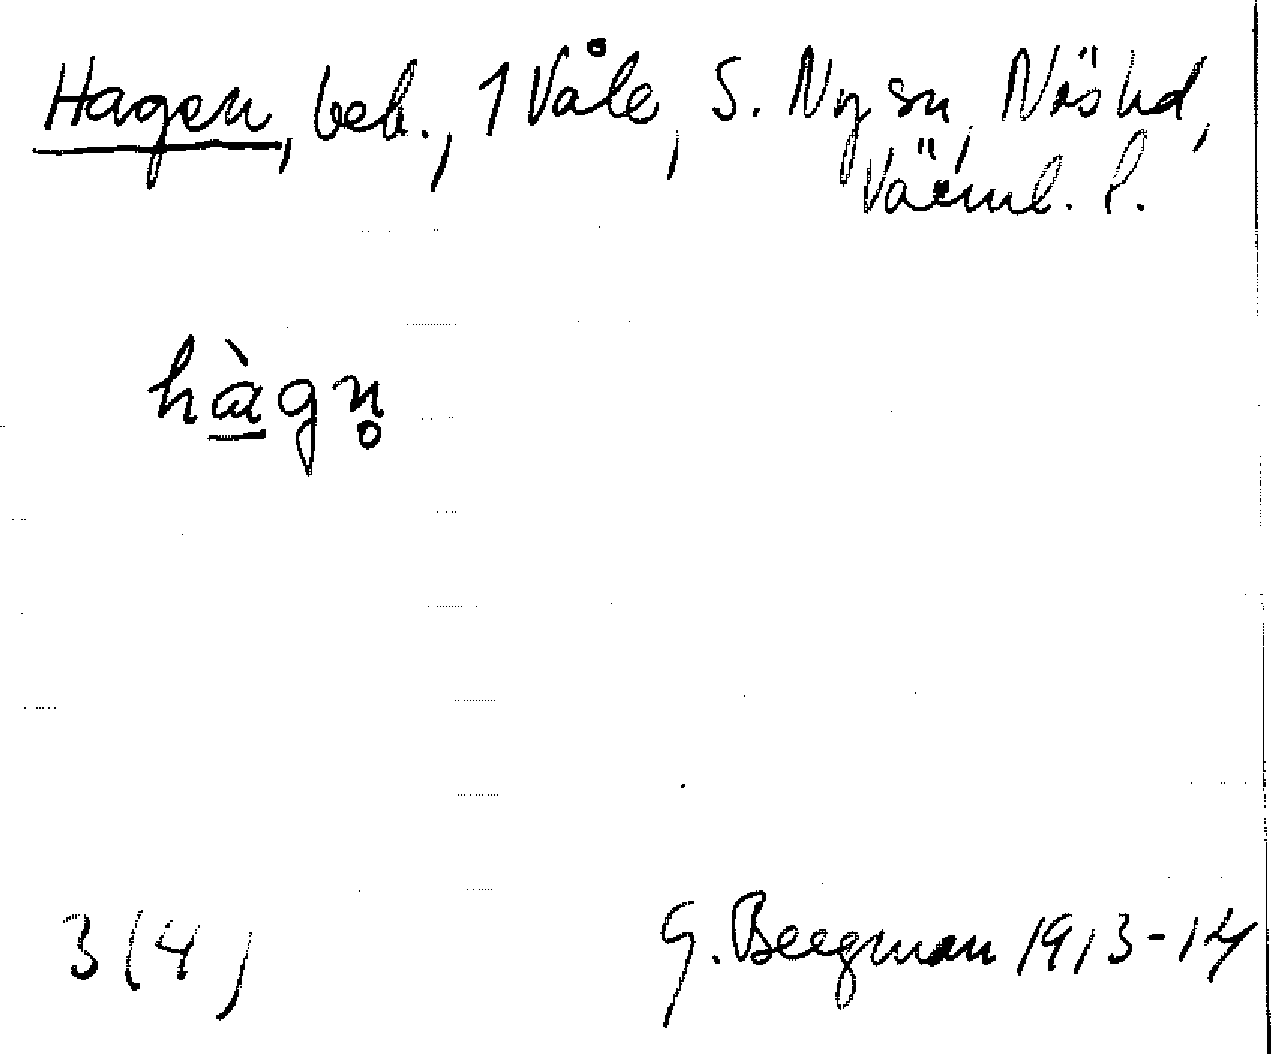 Hagen, beb., 1 Våle, S. Ny sn, Näs hd,
Värml. l.
hàgn̥
3(4) G. Bergman 1913-14